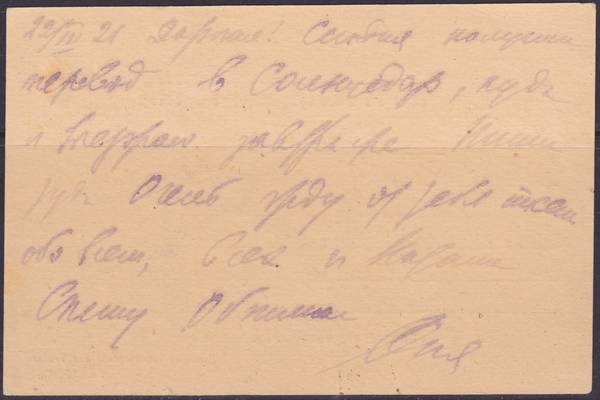 22/IV 21 Дорогая! Сегодня получил
перевод в Солнцедар, куда
и выезжаю завтра же Пиши
туда Очень жду от тебя писем
обо всем,
Спешу Обнимаю